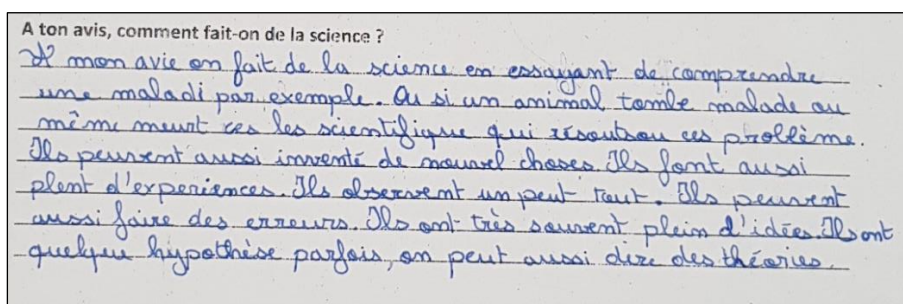 A ton avis, comment fait-on de la science ?
A mon avie on fait de la science en essayant de comprendre
une maladi par exemple. Ou si un animal tombe malade ou
même meurt ces les scientifique qui résoutsou ces problème.
Ils peuvent aussi inventé de nouvel choses Ils font aussi
plent d'experiences. Ils observent un peut tout. Ils peuvent
aussi faire des erreurs. Ils ont très souvent plein d'idées. Ils ont
quelque hypothèse parfois, on peut aussi dire des théories.